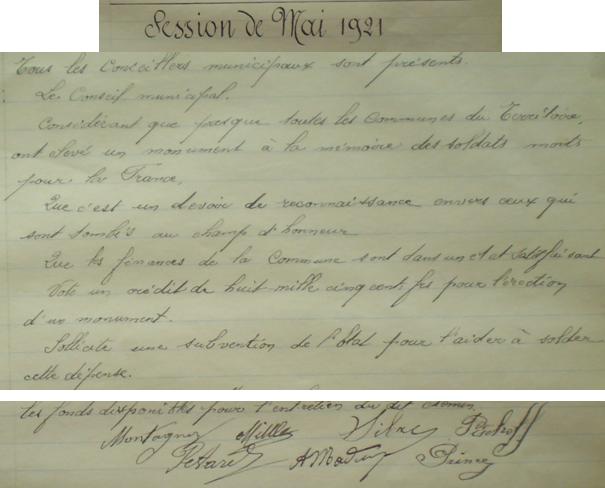 Session de Mai 1921
Tous les Conseillers municipaux sont présents.
Le Conseil municipal.
Considérant que presque toutes les Communes du Territoire,
ont élevé un monument à la mémoire des soldats morts
pour la France,
Que c'est un devoir de reconnaissance envers ceux qui
sont tombés au champ d'honneur
Que les finances de la Commune sont dans un état satisfaisant
Vote un crédit de huit mille cinq cent frs pour l'érection
d'un monument.
Sollicite une subvention de l'État pour l'aider à solder
cette dépense.
les fonds disponibles pour l'entretien du dit
Montagne Mille
Prince